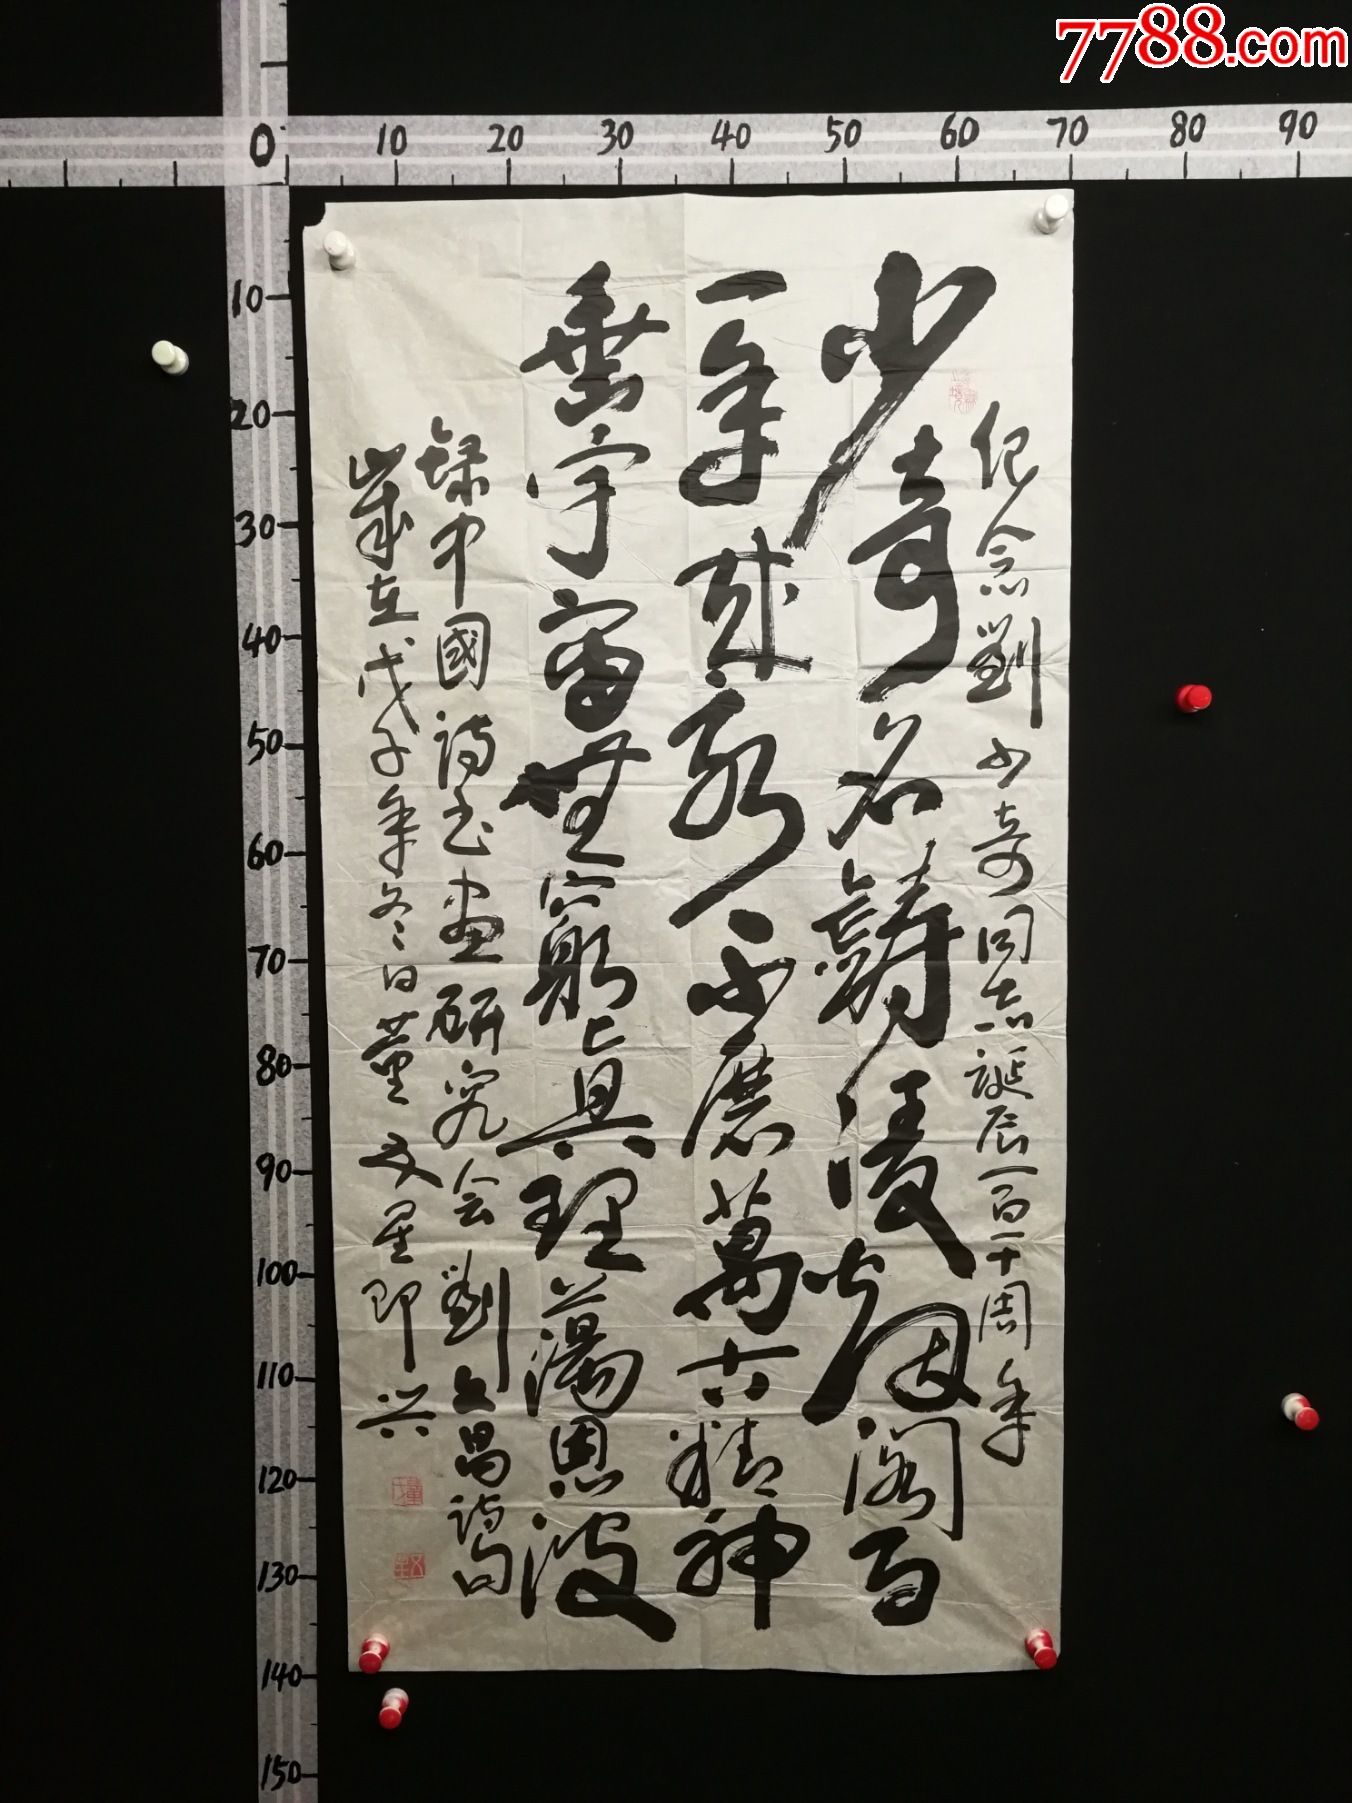 7788.com
0 10 20 30 40 50 60 70 80 90
10
20
30
40
50
60
70
80
90
100
110
120
130
140
150
纪念劉少奇同志誕辰一百一十周年
少奇名鑄凌烟阁百
一年来永不磨萬古精神
垂宇宙無窮真理蕩恩波
録中國诗书画研究会劉文昌诗句
歲在戊子年冬日董文星即兴